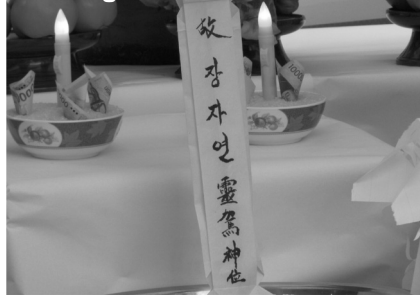 故장자연靈駕神位